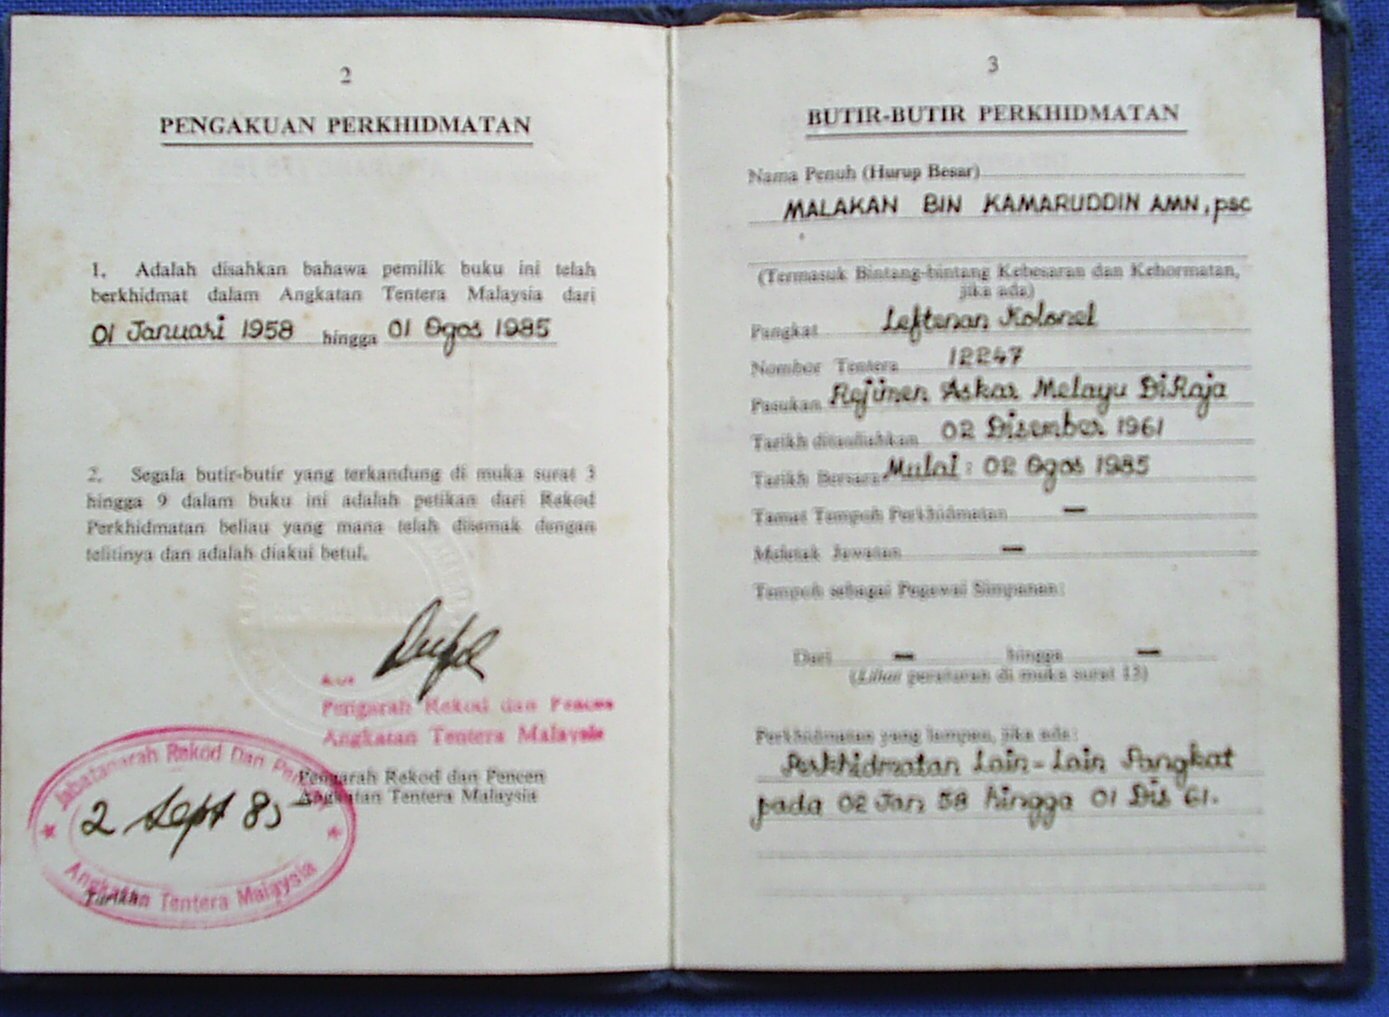 2
PENGAKUAN PERKHIDMATAN
1. Adalah disahkan bahawa pemilik buku ini telah
berkhidmat dalam Angkatan Tentera Malaysia dari
01 Januari 1958 hingga 01 Ogos 1985
2. Segala butir-butir yang terkandung di muka surat 3
hingga 9 dalam buku ini adalah petikan dari Rekod
Perkhidmatan beliau yang mana telah disemak dengan
telitinya dan adalah diakui betul.
Pengarah Rekod dan Pencen
Angkatan Tentera Malaysia
Pengarah Rekod dan Pencen
Angkatan Tentera Malaysia
Jabatanarah Rekod Dan Pencen
2 Sept 85
Tarikh
Angkatan Tentera Malaysia
3
BUTIR-BUTIR PERKHIDMATAN
Nama Penuh (Hurup Besar)
MALAKAN BIN KAMARUDDIN AMN, psc
(Termasuk Bintang-bintang Kebesaran dan Kehormatan,
jika ada)
Pangkat Leftenan Kolonel
Nombor Tentera 12247
Pasukan Rejimen Askar Melayu DiRaja
Tarikh ditauliahkan 02 Disember 1961
Tarikh Bersara Mulai: 02 Ogos 1985
Tamat Tempoh Perkhidmatan —
Meletak Jawatan —
Tempoh sebagai Pegawai Simpanan:
Dari — hingga —
(Lihat peraturan di muka surat 13)
Perkhidmatan yang lampau, jika ada:
Perkhidmatan Lain-Lain Pangkat
pada 02 Jan 58 hingga 01 Dis 61.